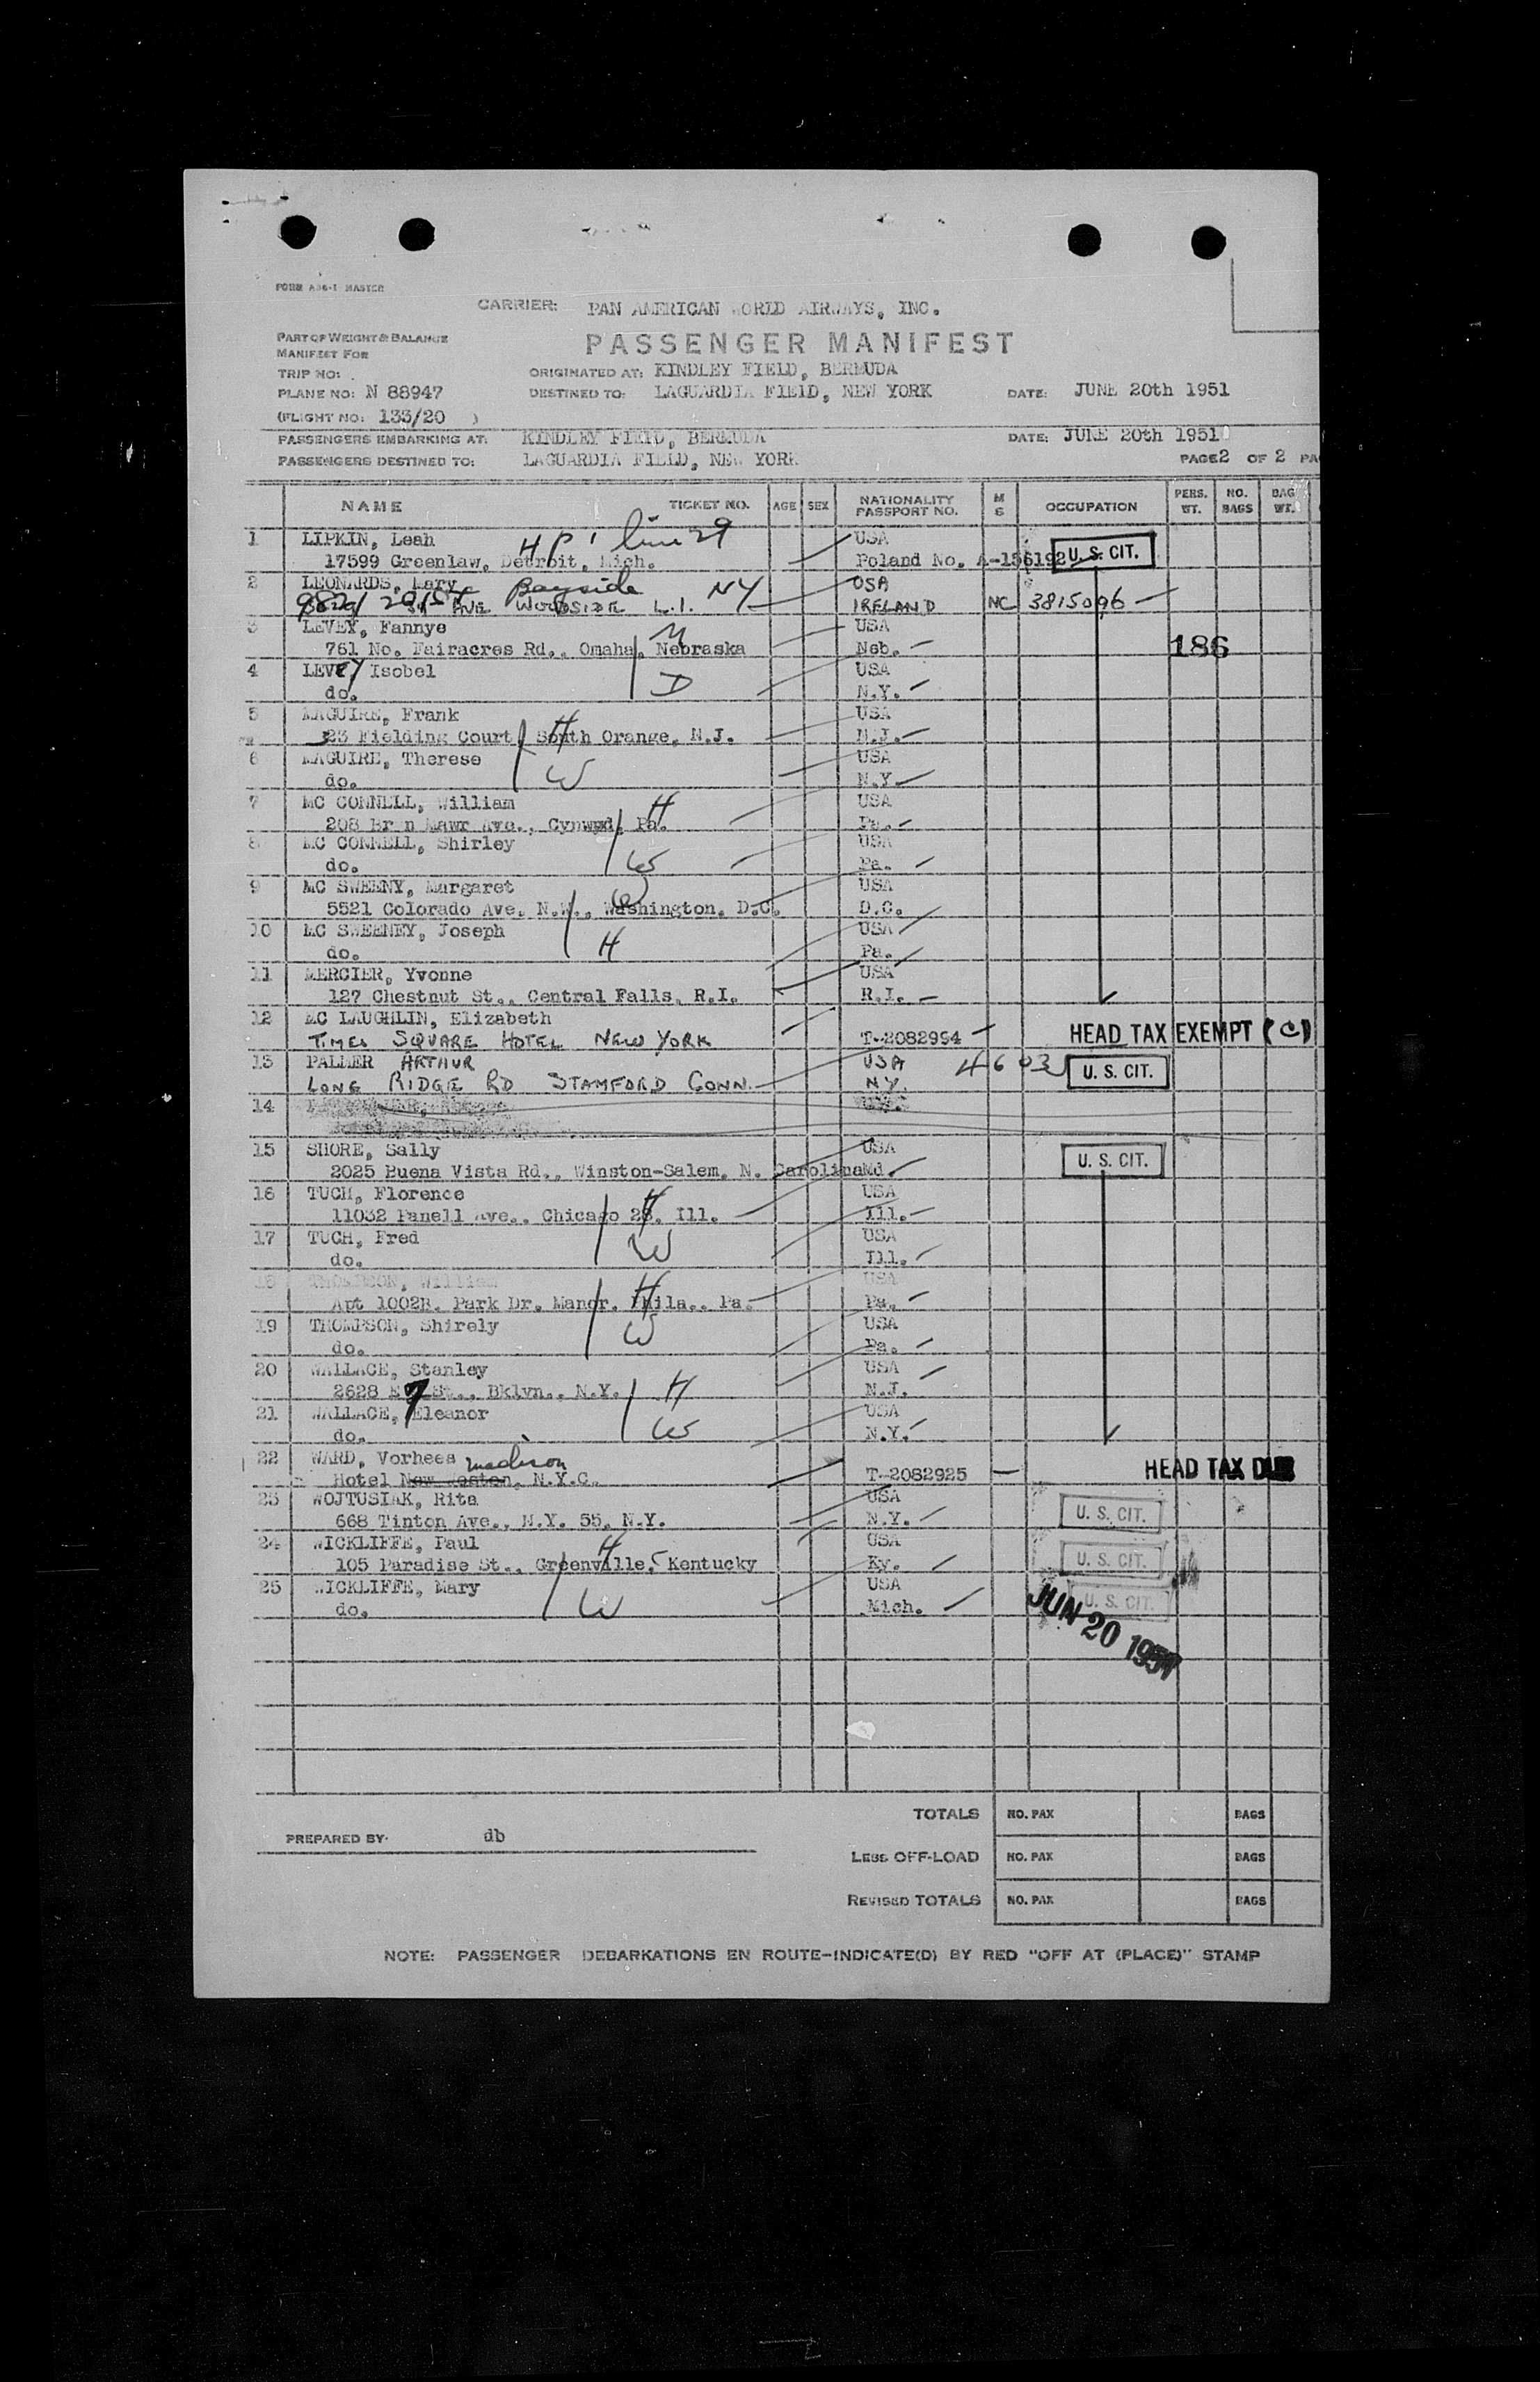 FORM A86-1 MASTER
CARRIER: PAN AMERICAN WORLD AIRWAYS, INC.
PART OF WEIGHT & BALANCE
MANIFEST FOR
PASSENGER MANIFEST
TRIP NO:
ORIGINATED AT: KINDLEY FIELD, BERMUDA
PLANE NO: N 88947
DESTINED TO: LAGUARDIA FIELD, NEW YORK
DATE: JUNE 20th 1951
(FLIGHT NO: 133/20 )
PASSENGERS EMBARKING AT: KINDLEY FIELD, BERMUDA
DATE: JUNE 20th 1951
PASSENGERS DESTINED TO: LAGUARDIA FIELD, NEW YORK
PAGE 2 OF 2 PA
NAME TICKET NO. AGE SEX NATIONALITY PASSPORT NO. M S OCCUPATION PERS. WT. NO. BAGS BAG WT.
1 LIPKIN, Leah H P 1 line 29 USA
17599 Greenlaw, Detroit, Mich. Poland No. A-156192 U. S. CIT.
2 LEONARDS, Mary Bayside NY USA
AVE WOODSIDE L.I. IRELAND NC 3815096
3 LEVEY, Fannye M USA
761 No. Fairacres Rd., Omaha, Nebraska Neb. 186
4 LEVEY Isobel USA
do. D N.Y.
5 MAGUIRE, Frank H USA
23 Fielding Court, South Orange, N.J. N.J.
6 MAGUIRE, Therese USA
do. W N.Y.
7 MC CONNELL, William H USA
208 Br n Mawr Ave., Cynwyd, Pa. Pa.
8 MC CONNELL, Shirley USA
do. W Pa.
9 MC SWEENY, Margaret W USA
5521 Colorado Ave. N.W., Washington, D.C. D.C.
10 MC SWEENEY, Joseph USA
do. H Pa.
11 MERCIER, Yvonne USA
127 Chestnut St., Central Falls, R.I. R.I.
12 MC LAUGHLIN, Elizabeth
TIMES SQUARE HOTEL NEW YORK T-2082994 HEAD TAX EXEMPT (C)
13 PALMER ARTHUR USA 4603
LONG RIDGE RD STAMFORD CONN. NY. U. S. CIT.
14
15 SHORE, Sally USA U. S. CIT.
2025 Buena Vista Rd., Winston-Salem, N. Carolina Md.
16 TUCH, Florence H USA
11032 Panell Ave., Chicago 28, Ill. Ill.
17 TUCH, Fred W USA
do. Ill.
18 THOMPSON, William H USA
Apt 1002B, Park Dr. Manor, Phila., Pa. Pa.
19 THOMPSON, Shirely W USA
do. Pa.
20 WALLACE, Stanley USA
2628 E 7 St., Bklyn., N.Y. H N.J.
21 WALLACE, Eleanor USA
do. W N.Y.
22 WARD, Vorhees madison HEAD TAX DUE
Hotel New Weston, N.Y.C. T-2082925
23 WOJTUSIAK, Rita USA U. S. CIT.
668 Tinton Ave., N.Y. 55, N.Y. N.Y.
24 WICKLIFFE, Paul H USA U. S. CIT.
105 Paradise St., Greenville, Kentucky Ky.
25 WICKLIFFE, Mary USA U. S. CIT.
do. W Mich.
JUN 20 1951
TOTALS NO. PAX BAGS
PREPARED BY: db
LESS OFF-LOAD NO. PAX BAGS
REVISED TOTALS NO. PAX BAGS
NOTE: PASSENGER DEBARKATIONS EN ROUTE-INDICATE(D) BY RED "OFF AT (PLACE)" STAMP